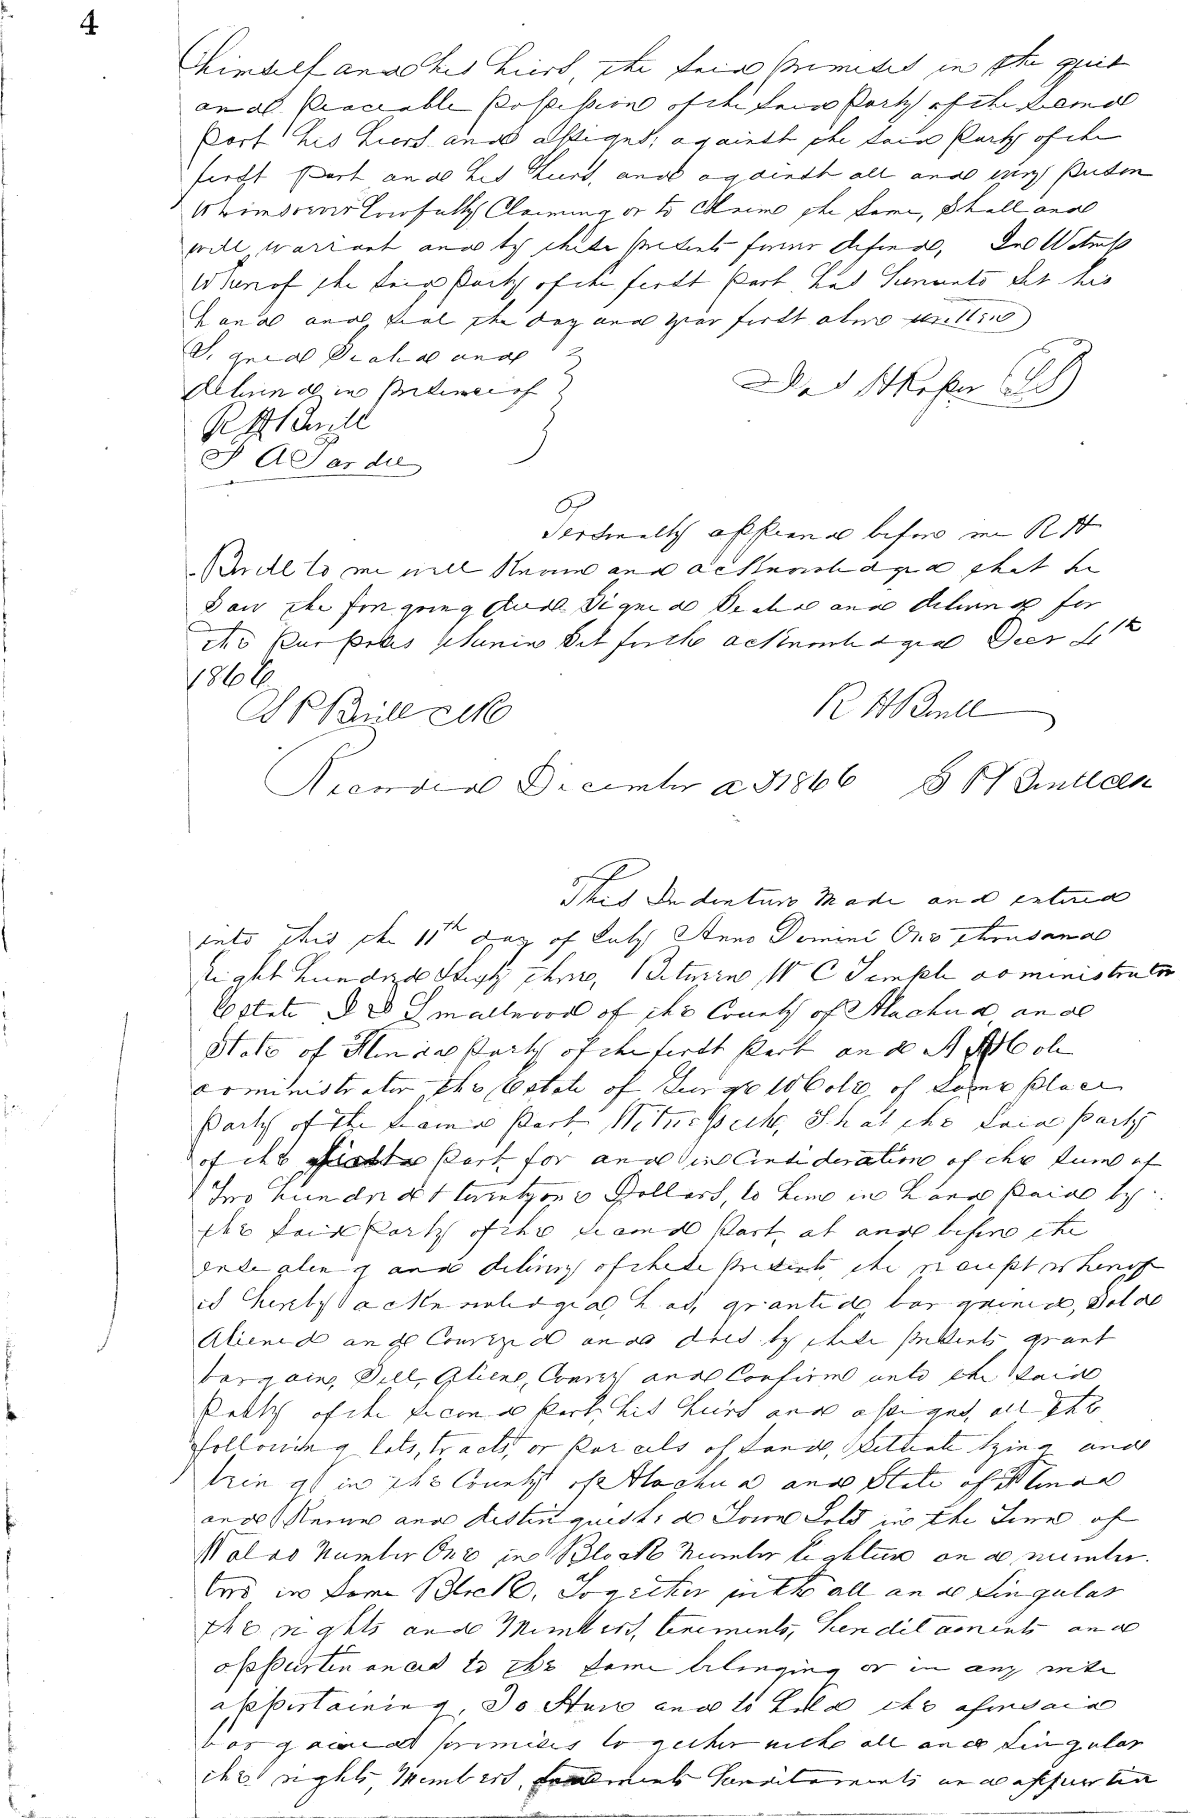 4
himself and his heirs, the said premises in the quiet
and Peaceable Possession of the said Party of the Second
Part his heirs and assigns; against the said Party of the
first Part and his heirs, and against all and every Person
Whomsoever Lawfully Claiming or to Claim the Same, Shall and
will warrant and by these presents forever defend, In Witness
Whereof the said Party of the first Part has hereunto Set his
hand and seal the day and year first above written
Signed Sealed and
Delivered in Presence of
R H
J A
Personally appeared before me R H
to me well Known and acknowledged that he
Saw the foregoing deed Signed Sealed and delivered for
the Purposes therein Set forth acknowledged Decr 4th
1866
R H
Recorded December 1866
This Indenture Made and entered
into this the 11th day of July Anno Domini One thousand
Eight hundred Sixty three, Between W C Temple administrator
Estate Smallwood of the County of Alachua and
State of Florida Party of the first Part and A Cole
administrator the Estate of George W Cole of Same place
Party of the Second Part, Witnesseth, That the Said party
of the first Part for and in Consideration of the Sum of
Two hundred & twenty one Dollars, to him in hand Paid by
the Said Party of the Second Part, at and before the
ensealing and delivery of these presents, the receipt whereof
is hereby acknowledged, has, granted, bargained, Sold
Aliened and Conveyed and does by these presents grant
bargain, Sell, Aliene, Convey and Confirm unto the Said
Party of the Second Part, his heirs and assigns, all the
following lots, tracts, or Parcels of Land, Situate lying and
being in the County of Alachua and State of Florida
and Known and distinguished as Town Lots in the Town of
Waldo Number One in Block Number Eighteen and number
two in Same Block, Together with all and Singular
the rights and Members, tenements, hereditaments and
appurtenances to the Same belonging or in any wise
appertaining, To Have and to hold the aforesaid
bargained premises together with all and Singular
the rights, Members, tenements hereditaments and appurten